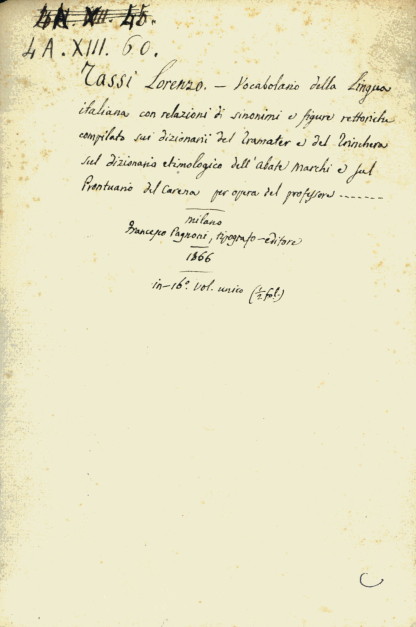 4A. XIII. 60.
Tassi Lorenzo. — Vocabolario della Lingua
italiana con relazioni di sinonimi e figure rettoriche
compilato sui dizionarii del Tramater e del Trinchera
sul dizionario etimologico dell'Abate Marchi e sul
Prontuario del Carena per opera del professore -------
Milano
Francesco Pagnoni, tipografo-editore
1866
in-16º. vol. unico (½ fol.)